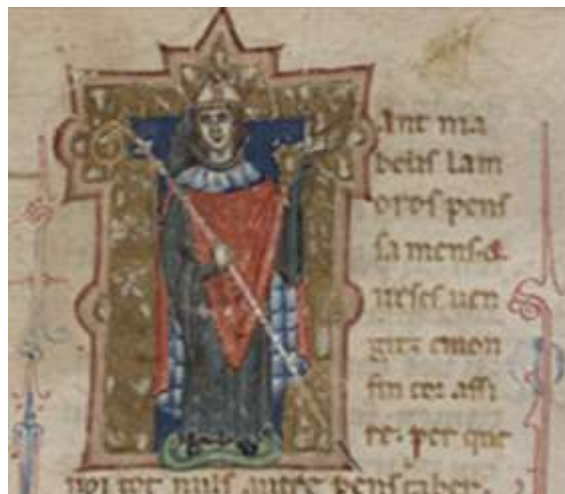 Ant ma
beliſ lam
oroſ penſ
ſamenſ.&
ueſeſ uen
guz emon
fin coz. aſſi
re. per que
noi cor nulſ autre penſ caber.